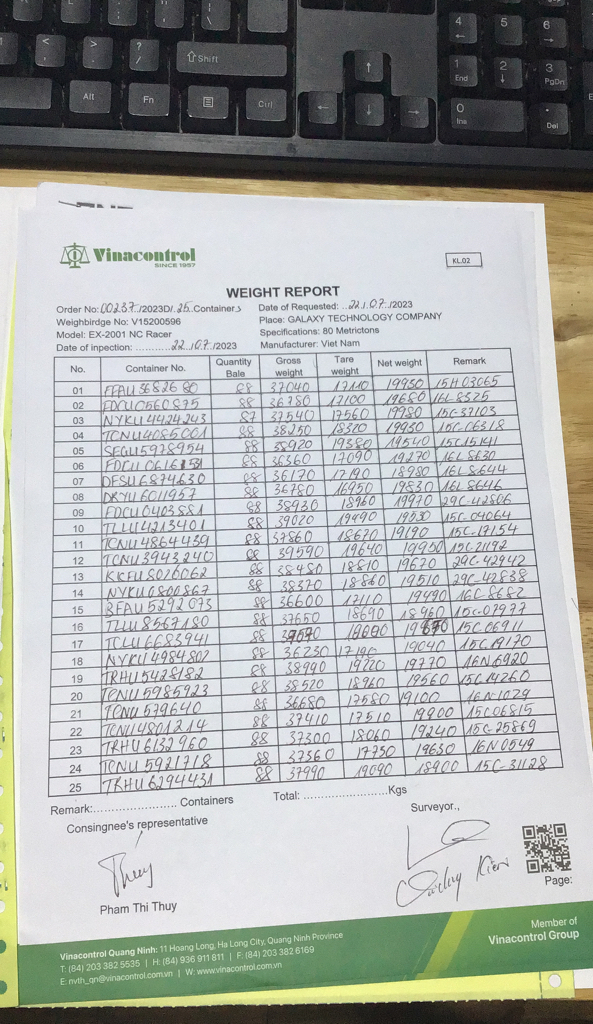 Shift
Alt
Fn
Ctrl
4
5
6
1
End
2
3
PgDn
0
Ins
Del
Vinacontrol
SINCE 1957
KL.02
WEIGHT REPORT
Order No: 00237/2023D/.25.Containers Date of Requested: 22/07/2023
Weighbirdge No: V15200596 Place: GALAXY TECHNOLOGY COMPANY
Model: EX-2001 NC Racer Specifications: 80 Metrictons
Date of inpection: 22/07/2023 Manufacturer: Viet Nam
No. Container No. Quantity Bale Gross weight Tare weight Net weight Remark
01 FFAU3682680 88 37040 17110 19930 15H03065
02 FDCU0560875 88 36780 17100 19680 16L-8325
03 NYKU4424243 87 37540 17560 19980 15C-37103
04 TCNU4085001 88 38250 18320 19930 15C-06318
05 SEGU5978954 88 38920 19380 19540 15C15141
06 FDCU0616151 88 36360 17090 19270 16L8630
07 DFSU6874630 88 36170 17190 18980 16L8644
08 DRYU6011957 88 36780 16950 19830 16L8646
09 FDCU0403881 88 38930 18960 19970 29C-42806
10 TLLU4213401 88 39020 19490 19530 15C-04064
11 TCNU4864439 88 37860 18670 19190 15C-17154
12 TCNU3943240 88 39590 19640 19950 15C21192
13 88 38480 18810 19670 29C-42942
14 NYKU0800867 88 38370 18860 19510 29C-42838
15 BFAU5292073 88 36600 17110 19490 16C-8682
16 TLLU8567180 88 37650 18690 18960 15C-07977
17 TCLU6683941 88 15C06911
18 NYKU4984802 88 36230 17190 19040 15C19170
19 TRHU5428182 88 38990 19220 19770 16N6920
20 TCNU5985923 88 38520 18960 19560 15C14260
21 TCNU579640 88 36680 17580 19100 16N-1029
22 TCNU4801214 88 37410 17510 19900 15C06815
23 TRHU6132960 88 37300 18060 19240 15C-25869
24 TCNU5921718 88 37360 17750 19630 16N0549
25 TRHU6294431 88 37990 19090 18900 15C-31128
Remark:........................ Containers Total: ........................Kgs
Consingnee's representative Surveyor.,
Thuy
Pham Thi Thuy
Page:
Vinacontrol Quang Ninh: 11 Hoang Long, Ha Long City, Quang Ninh Province
T: (84) 203 382 5535 | H: (84) 936 911 811 | F: (84) 203 382 6169
E: nvth_qn@vinacontrol.com.vn | W: www.vinacontrol.com.vn
Member of
Vinacontrol Group